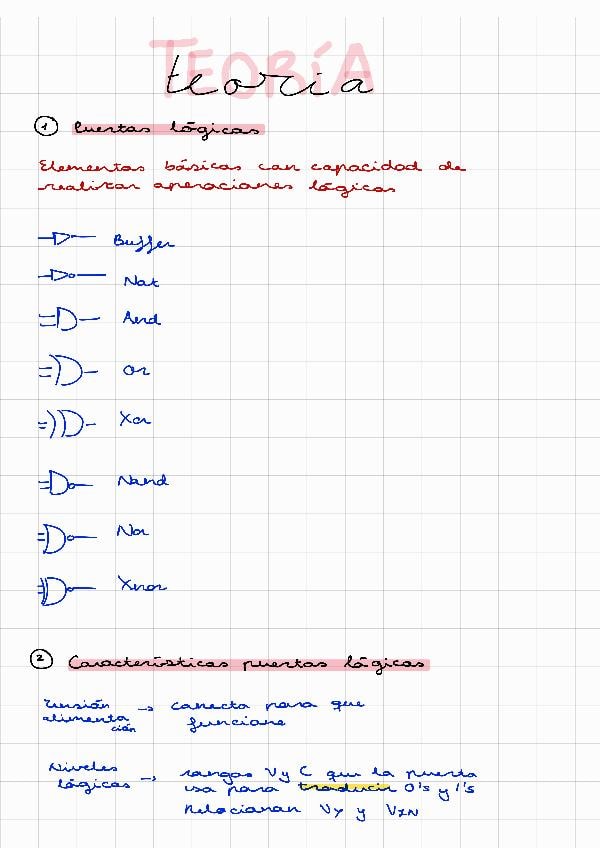 TEORÍA
teoria
1 Puertas lógicas
Elementos básicos con capacidad de
realizar operaciones lógicas
Buffer
Not
And
Or
Xor
Nand
Nor
Xnor
2 Características puertas lógicas
Tensión → conecta para que
alimenta funcione
ción
Niveles → rangos V y C que la puerta
lógicos usa para traducir 0's y 1's
Relacionan Vy y VIN